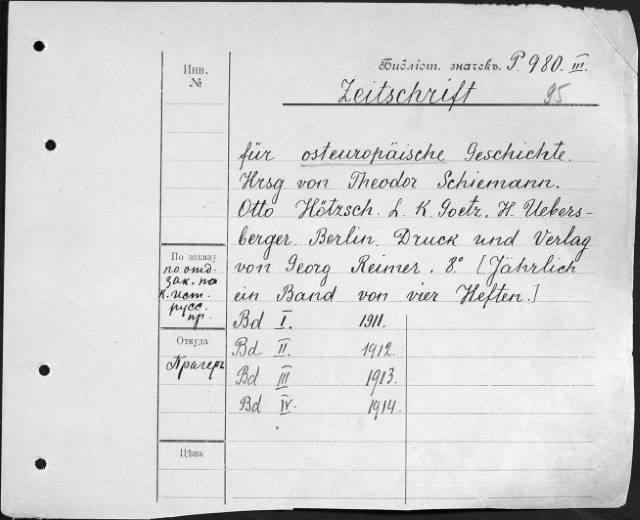 Библіот. значекъ. P. 980. III.
Инв. №
Zeitschrift 95
für osteuropäische Geschichte.
Hrsg von Theodor Schiemann.
Otto Hötzsch. L. K. Goetz. H. Uebers-
berger. Berlin. Druck und Verlag
von Georg Reimer. 8° [Jährlich
ein Band von vier Heften.]
По заказу
по отд.
зак. на
к. ист.
русс.
пр.
Bd I. 1911.
Откуда
Прагеръ
Bd II. 1912.
Bd III 1913.
Bd IV. 1914.
Цѣна